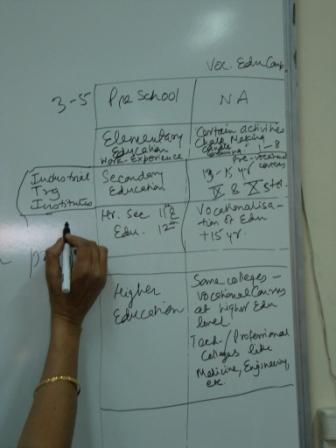 Voc. Edu Comp.
3-5 Pre School NA
Elementary Education Work-Experience
Certain activities
Chalk Making
1-8
Pre-vocational courses
Industrial Trg Institutes
Secondary Education
13-15 yr
IX & X std.
Hr. Sec 11th
Edu. 12th
Vocationalisa-
tion of Edu
+15 yr.
Higher Education
Some colleges -
Vocational Courses
at higher Edu
level
Tech / Professional
colleges like
Medicine, Engineering,
etc.